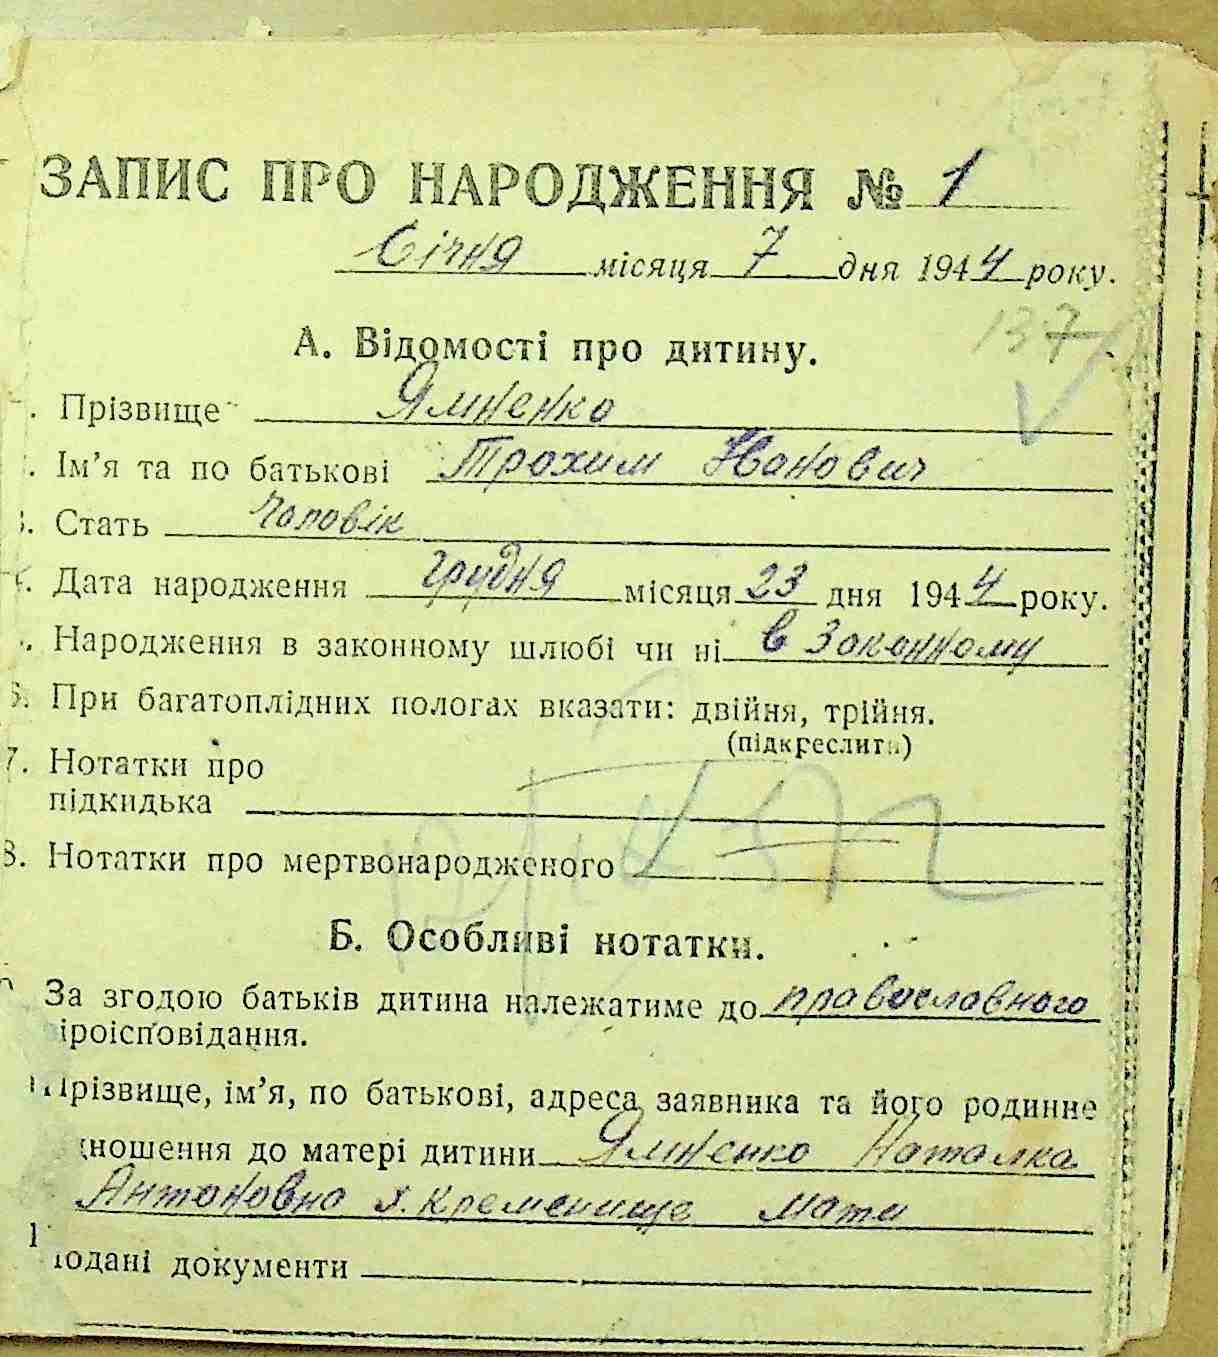 ЗАПИС ПРО НАРОДЖЕННЯ № 1
Січня місяця 7 дня 1944 року.
137
А. Відомості про дитину.
. Прізвище Ямненко
. Ім’я та по батькові Трохим Іванович
3. Стать Чоловік
. Дата народження грудня місяця 23 дня 1944 року.
. Народження в законному шлюбі чи ні в Законному
6. При багатоплідних пологах вказати: двійня, трійня.
(підкреслити)
7. Нотатки про
підкидька
8. Нотатки про мертвонародженого
Б. Особливі нотатки.
За згодою батьків дитина належатиме до православного
іроісповідання.
Прізвище, ім’я, по батькові, адреса заявника та його родинне
ношення до матері дитини Ямненко Наталка
Антоновна х. Кременище мати
1
одані документи